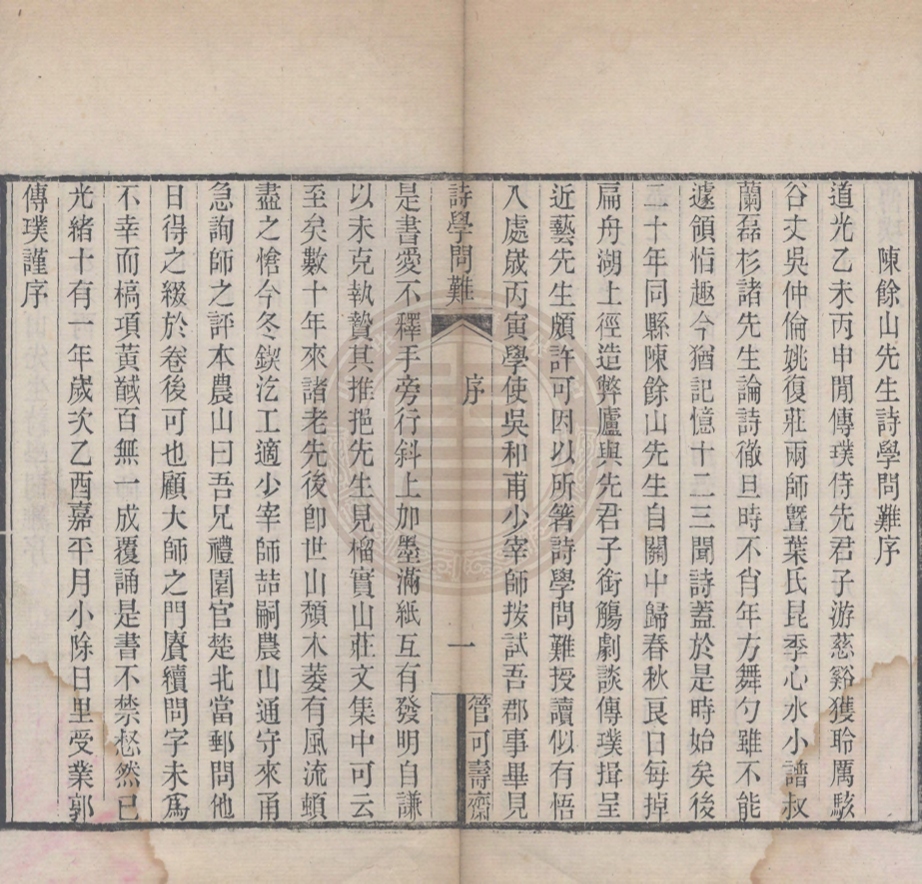 陳餘山先生詩學問難序
道光乙未丙申閒傳璞侍先君子游慈谿獲聆厲駭
谷丈吳仲倫姚復莊兩師曁葉氏昆季心水小譜叔
蘭磊杉諸先生論詩徹旦時不肖年方舞勺雖不能
遽領恉趣今猶記憶十二三聞詩蓋於是時始矣後
二十年同縣陳餘山先生自關中歸春秋良日每掉
扁舟湖上徑造弊廬與先君子銜觴劇談傳璞揖呈
近藝先生頗許可因以所箸詩學問難授讀似有悟
入處歲丙寅學使吳和甫少宰師按試吾郡事畢見
詩學問難
序
一
管可壽齋
是書愛不釋手旁行斜上加墨滿紙互有發明自謙
以未克執贄其推挹先生見榴實山莊文集中可云
至矣數十年來諸老先後卽世山頹木萎有風流頓
盡之愴今冬鍥汔工適少宰師喆嗣農山通守來甬
急詢師之評本農山曰吾兄禮園官楚北當郵問他
日得之綴於卷後可也顧大師之門賡續問字未爲
不幸而槁項黃馘百無一成覆誦是書不禁愁然已
光緒十有一年歲次乙酉嘉平月小除日里受業郭
傳璞謹序